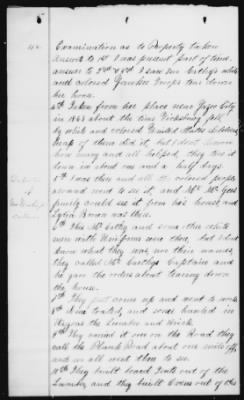 42
Examination as to Property taken
Answer to 1st I was present part of time.
answer to 2nd & 3rd I saw
and colored Yankee Troops tear down
her house.
4th Taken from her place near Yazoo City
in 1863 about the time Vicksburg fell,
by white and colored United States soldiers
heap of them did it, but I dont know
how many and all helped, they tore it
down in about one and a half days.
5th I was there and all the colored people
around went to see it, and Mr Mc
family could see it from his house, and
Lydia Brown was there.
6th This and some other white
men with Uniforms were there, but I dont
know what they was, nor their names,
they called Mr Captain and
he gave the orders about tearing down
the house.
7th They just come up and went to work
8th Dino'trated, and some hauled in
Wagons the Lumber and Brick.
9th They carried it over on the Road they
call the Plank Road about one mile off,
and we all went there to see.
10th They built board Tents out of the
Lumber and they built Ovens out of the